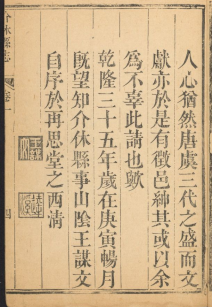 人心猶然唐虞三代之盛而文
獻亦於是有徵邑紳其或以余
為不辜此請也歟
乾隆三十五年歲在庚寅暢月
既望知介休縣事山陰王謀文
自序於再思堂之西清
介休縣志
卷一
四